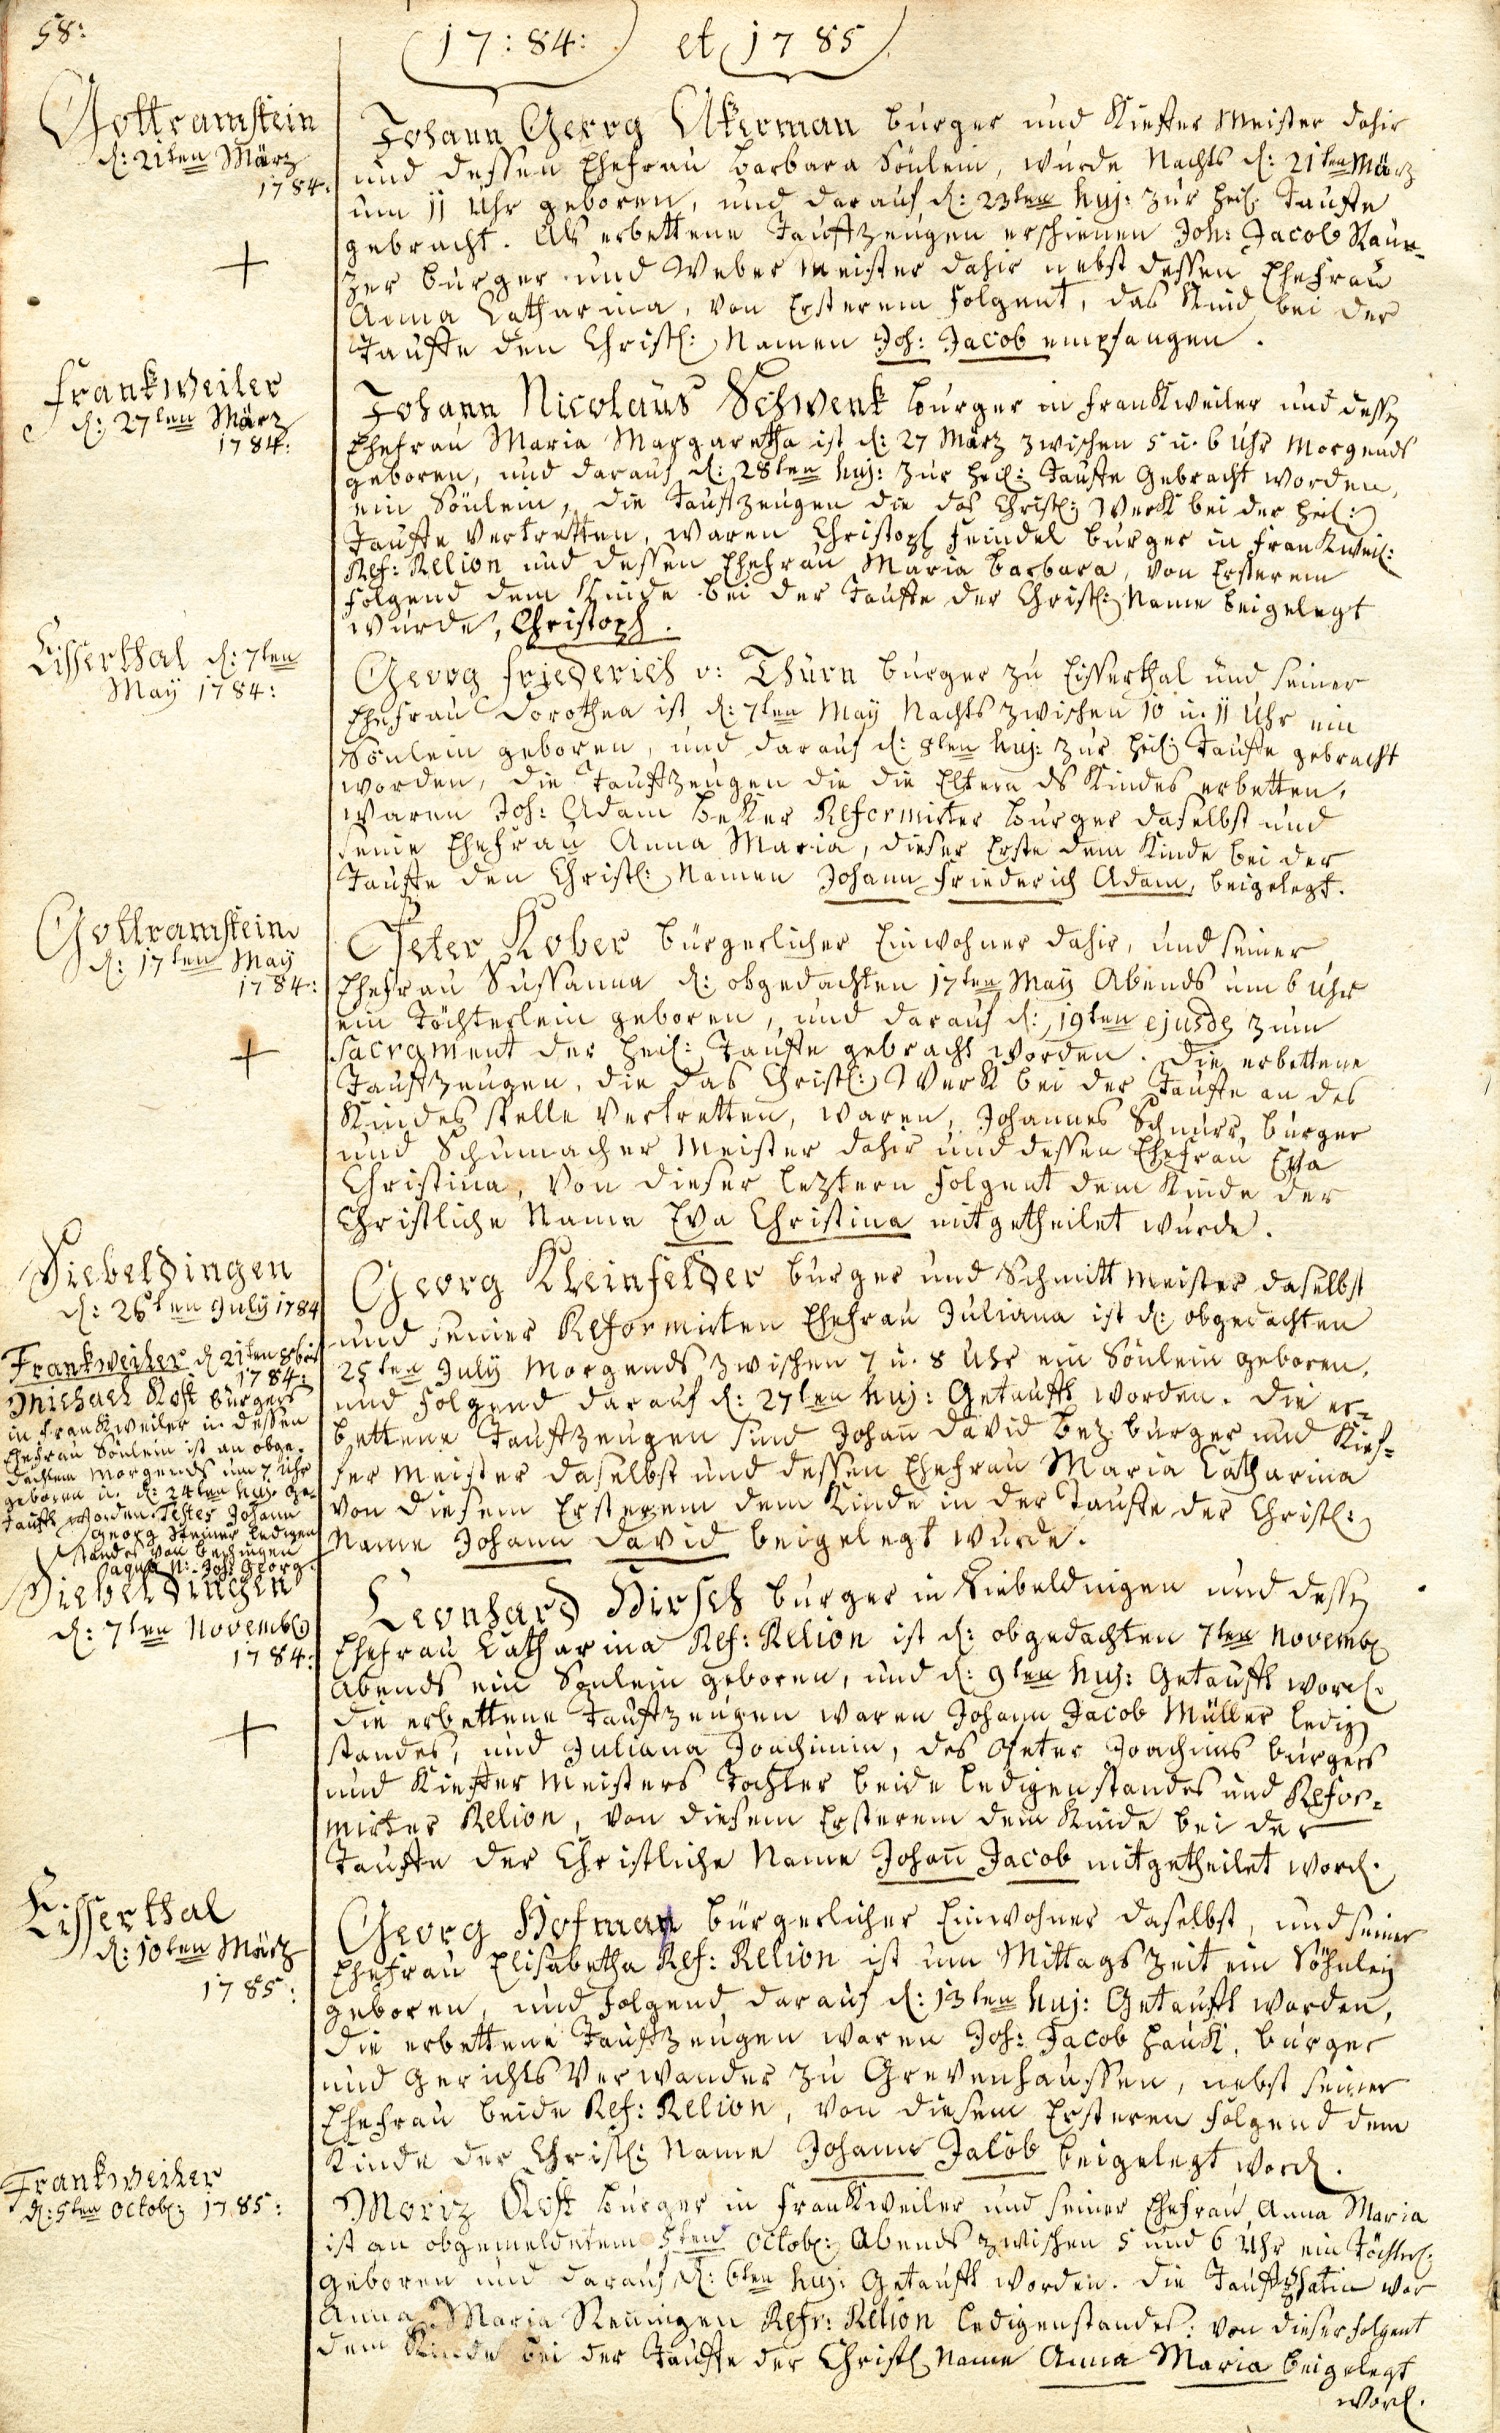 58:
17:84: et 1785
Gottramstein
d: 21ten März
1784:
Johann Georg Akerman burger und Kieffer Meister dahir
und dessen Ehefrau Barbara Sönlein, wurde Nachts d: 21ten März
um 11 Uhr geboren, und darauf d: 23ten huj: zur heil: Tauffe
gebracht. Als erbettene Tauffzeugen erschienen Joh: Jacob
burger und Weber Meister dahir nebst dessen Ehefrau
Anna Catharina, von Ersterem folgent, das Kind bei der
Tauffe den Christl: Namen Joh: Jacob empfangen.
Frankweiler
d: 27ten März
1784:
Johann Nicolaus Schwenk burger in Frankweiler und dessen
Ehefrau Maria Margaretha ist d: 27 März zwischen 5 u. 6 Uhr Morgends
geboren, und darauf d: 28ten huj: zur heil: Tauffe gebracht worden,
ein Sönlein, die Tauffzeugen die das Christl: Werk bei der heil:
Tauffe vertretten, waren Christoph Feindel burger in Frankweil:
Ref: Relion und dessen Ehefrau Maria Barbara, von Ersterem
folgend dem Kinde bei der Tauffe der Christl: Name beigelegt
wurde, Christoph.
Eisserthal d: 7ten
May 1784:
Georg Friederich v: Thürn burger zu Eisserthal und seiner
Ehefrau Dorothea ist d: 7ten May Nachts zwischen 10 u. 11 Uhr ein
Sönlein geboren, und darauf d: 8ten huj: zur heil: Tauffe gebracht
worden, die Tauffzeugen die die Eltern ds Kindes erbetten,
waren Joh: Adam Bekker Reformirter burger daselbst und
seine Ehefrau Anna Maria, dieser Erste dem Kinde bei der
Tauffe den Christl: Namen Johann Friederich Adam, beigelegt.
Gottramstein
d: 17ten May
1784:
Peter Kober bürgerlicher Einwohner dahir, und seiner
Ehefrau Sussanna d: obgedachten 17ten May Abends um 6 Uhr
ein Töchterlein geboren, und darauf d: 19ten ejusdem zum
Sacrament der heil: Tauffe gebracht worden. Die erbettene
Tauffzeugen, die das Christl: Werk bei der Tauffe an des
Kindes stelle vertretten, waren, Johannes Schnurr, burger
und Schumacher Meister dahir und dessen Ehefrau Eva
Christina, von dieser leztern folgent dem Kinde der
Christliche Name Eva Christina mitgetheilet wurde.
Siebeldingen
d: 25ten July 1784
Georg Kleinfelder burger und Schmitt Meister daselbst
und seiner Reformirten Ehefrau Juliana ist d: obgedachten
25ten July Morgends zwischen 7 u. 8 Uhr ein Sönlein geboren,
und folgend darauf d: 27ten huj: Getaufft worden. Die er=
bettene Tauffzeugen sind Johann David Bez burger und Kief=
fer Meister daselbst und dessen Ehefrau Maria Catharina
von diesem Ersterem dem Kinde in der Tauffe der Christl:
Name Johann David beigelegt wurde.
Frankweiler d 21ten 8bris
1784:
Michael Kost burgers
in Frankweiler u. dessen
Ehefrau Sönlein ist an obge=
dachtem Morgends um 7 Uhr
geboren u. d: 24ten huj. ge=
taufft worden Testes Johann
Georg Steiner ledigen
standes von
N: Joh: Georg.
Siebeldingen
d: 7ten Novemb:
1784:
Leonhard Hirsch burger in Siebeldingen und dessen
Ehefrau Catharina Ref: Relion ist d: obgedachten 7ten Novemb:
Abends ein Sönlein geboren, und d: 9ten huj: Getaufft word.
die erbettene Tauffzeugen waren Johann Jacob Müller ledig
standes, und Juliana Joachimin, des Peter Joachims burgers
und Kieffer Meisters Tochter beide ledigen standes und Refor=
mirter Relion, von diesem Ersterem dem Kinde bei der
Tauffe der Christliche Name Johann Jacob mitgetheilet word.
Eisserthal
d: 10ten März
1785:
Georg Hofman bürgerlicher Einwohner daselbst, und seiner
Ehefrau Elisabetha Ref: Relion ist um Mittags Zeit ein Söhnlein
geboren, und folgend darauf d: 13ten huj: Getaufft worden,
die erbettene Tauffzeugen waren Joh: Jacob Hauk, burger
und Gerichts Verwander zu Grevenhaussen, nebst seiner
Ehefrau beide Ref: Relion, von diesem Ersteren folgend dem
Kinde der Christl: Name Johann Jacob beigelegt word.
Frankweiler
d: 5ten Octob: 1785:
Moriz Kost burger in Frankweiler und seiner Ehefrau Anna Maria
ist an obgemeldetem 5ten Octob: Abends zwischen 5 und 6 Uhr ein Töchterl:
geboren und darauf d: 6ten huj: Getaufft worden. Die war
Anna Maria Refr: Relion ledigenstandes: von dieser folgent
dem Kinde bei der Tauffe der Christl Name Anna Maria beigelegt
word.